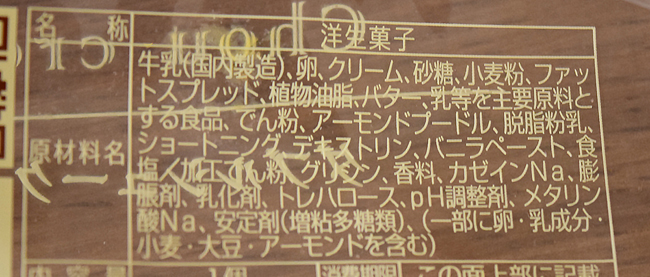 名称
洋生菓子
原材料名
牛乳(国内製造)、卵、クリーム、砂糖、小麦粉、ファッ
トスプレッド、植物油脂、バター、乳等を主要原料と
する食品、でん粉、アーモンドプードル、脱脂粉乳、
ショートニング、デキストリン、バニラペースト、食
塩/加工でん粉、グリシン、香料、カゼインNa、膨
脹剤、乳化剤、トレハロース、pH調整剤、メタリン
酸Na、安定剤(増粘多糖類)、(一部に卵・乳成分・
小麦・大豆・アーモンドを含む)
内容量
1個
消費期限
この面上部に記載